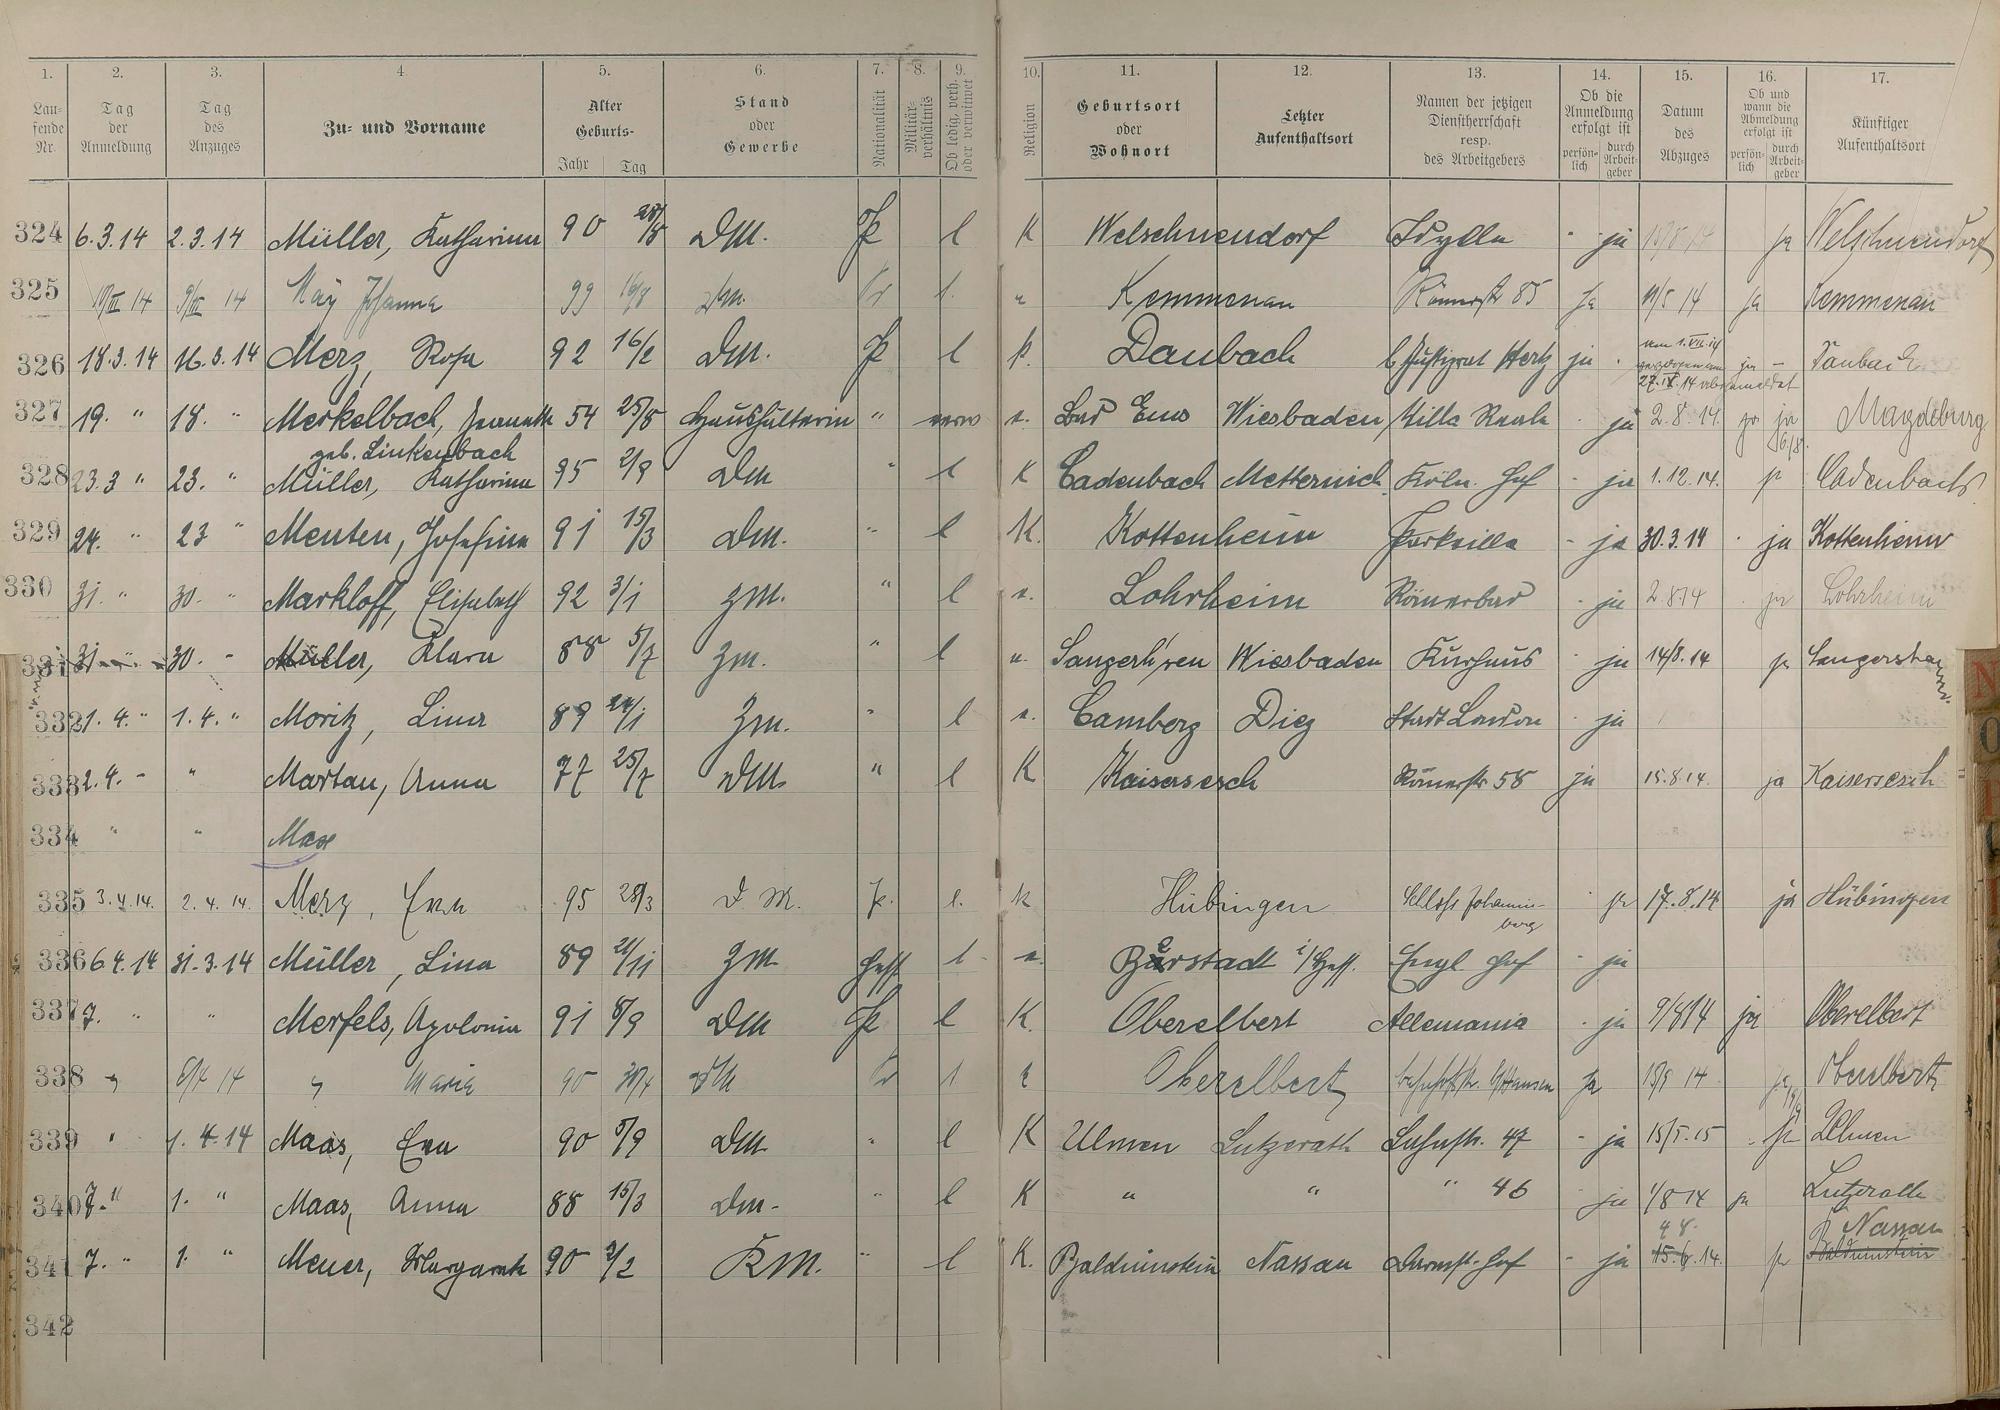 1. 2. 3. 4 5. 6. 7. 8. 9. 10. 11. 12. 13. 14. 15. 16. 17.
Laufende Nr. Tag der Anmeldung Tag des Anzuges Zu- und Vorname Alter Geburts- Jahr Tag Stand oder Gewerbe Nationalität Militärverhältnis Ob ledig, verh. oder verwitwet Religion Geburtsort oder Wohnort Letzter Aufenthaltsort Namen der jetzigen Dienstherrschaft resp. des Arbeitgebers Ob die Anmeldung erfolgt ist persönlich durch Arbeitgeber Datum des Abzuges Ob und wann die Abmeldung erfolgt ist persönlich durch Arbeitgeber Künftiger Aufenthaltsort
324 6.3.14 2.3.14 Müller, Katharina 90 28/8 DM. l K Welschneudorf Idylla - ja ja Welschneudorf
325 14 14 May Johanna 99 Dm. Pr l. Kemmenau Römerstr 85 Ja 14 Ja Kemmenau
326 18.3.14 16.3.14 Merz, Rosa 92 16/2 DM. l k. Daubach b Justizrat Hertz ja . ja - Daubach
327 19. " 18. " Merkelbach, Jeanette 54 25/8 Haushälterin " verw e. Bad Ems Wiesbaden Villa Reale - ja 2.8.14. ja ja Magdeburg
geb. Linkenbach
328 23.3 " 23. " Müller, Katharina 95 2/9 DM " l K Cadenbach Metternich Köln. Hof - ja 1.12.14. Cadenbach
329 24. " 23 " Menten, Josefina 91 15/3 DM. " l K. Kottenheim Parkvilla - ja 30.3.14 . ja Kottenheim
330 31. " 30. " Markloff, Elisabeth 92 3/1 ZM. " l e. Lohrheim Römerbad - ja 2.8 14 . ja Lohrheim
331 31 " 30. - Müller, Klara 88 5/7 ZM. " l e. Wiesbaden Kurhaus - ja 14/8.14
332 1.4. " 1.4. " Moritz, Lina 89 24/1 ZM. " l e. Camberg Diez Stadt London - ja
333 2.4. - " Martau, Anna 77 25/7 DM. " l K Kaisersesch Römerstr 58 ja 15.8.14. ja Kaisersesch
334 " " Max
335 3.4.14. 2.4.14. Merz, Eva 95 28/3 D.M. l. k Hübingen Schloss Johannisberg - ja 17.8.14 ja Hübingen
336 6.4.14 31.3.14 Müller, Lina 89 21/11 ZM Hess l e. Bürstadt i/Hess. Engl. Hof - ja
337 7. " " Merfels, Apolonia 91 8/9 DM l K. Oberelbert Allemania - ja 9/8 14 ja Oberelbert
338 " 14 " Maria 90 DM Pr l Oberelbert Ja 15/5 14 Oberelbert
339 " 1.4.14 Maas, Eva 90 5/9 DM " l K Ulmen Lutzerath Lahnstr. 47 - ja 15/5.15 Ulmen
340 7. " 1. " Maas, Anna 88 15/3 Dm. " l K " " " 46 - ja 1/8 14 ja Lutzerath
341 7. " 1. " Meuer, Margareth 90 2/2 KM. " l K. Balduinstein Nassau Darmst. Hof - ja Nassau Balduinstein
342